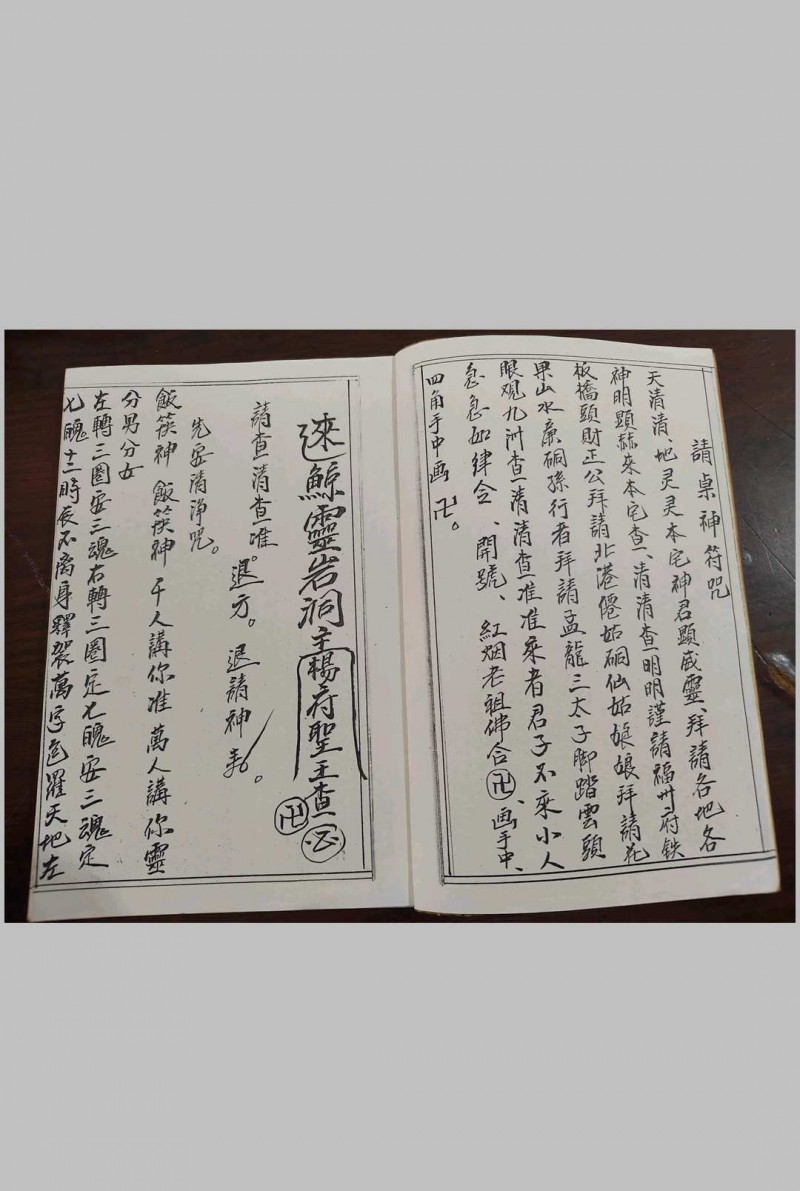 請桌神符咒
天清清、地灵灵本宅神君顯威靈、拜請各地各
神明顯赫來本宅查、清清查明明謹請福州府铁
板橋頭財正公拜請北港僊姑硐仙姑娘娘拜請花
果山水廉硐孫行者拜請孟龍三太子脚踏雲頭
眼观九洲查清清查准准乘者君子不乘小人
急急如律令、開號、紅烟老祖佛合卍、画手中、
四角手中画卍。
鯨靈岩洞主楊府聖王查
卍
請查清查准。退方。退請神
先安清净咒。
飯筷神 飯筷神 千人講你准 萬人講你靈
分男分女
左轉三圈安三魂右轉三圈定七魄安三魂定
七魄十二時辰不离身釋袈萬字包羅天地左